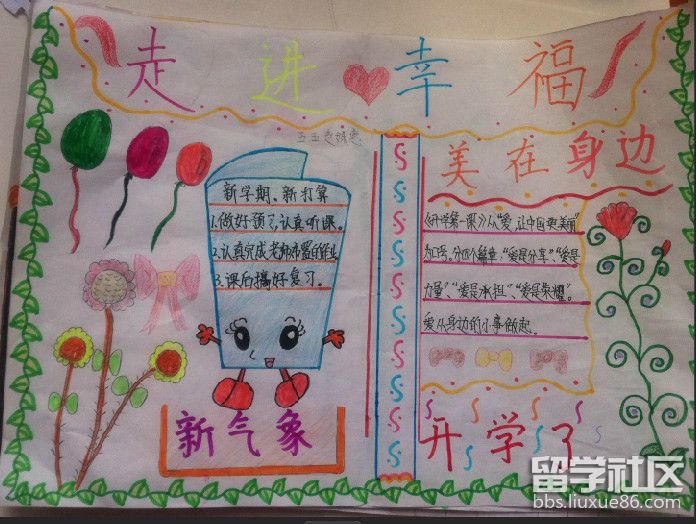 走进幸福
新学期、新打算
1.做好预习,认真听课。
2.认真完成老师布置的作业
3.课后搞好复习。
新气象
美在身边
《开学第一课》以"爱,让中国更美丽"
为口号。分四个篇章:"爱是分享""爱是
力量"、"爱是承担"、"爱是荣耀"。
爱从身边的小事做起。
开学了
留学社区
bbs.liuxue86.com